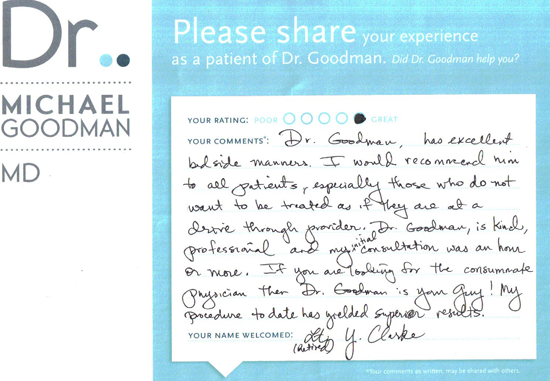 Dr.
MICHAEL
GOODMAN
MD
Please share your experience
as a patient of Dr. Goodman. Did Dr. Goodman help you?
YOUR RATING: POOR GREAT
YOUR COMMENTS*: Dr. Goodman, has excellent
bedside manners. I would recommend him
to all patients, especially those who do not
want to be treated as if they are at a
drive through provider. Dr. Goodman, is kind,
professional and my initial consultation was an hour
or more. If you are looking for the consummate
physician then Dr. Goodman is your guy! My
procedure to date has yielded superior results.
YOUR NAME WELCOMED: Lt. Y. Clarke
(Retired)
*Your comments as written, may be shared with others.